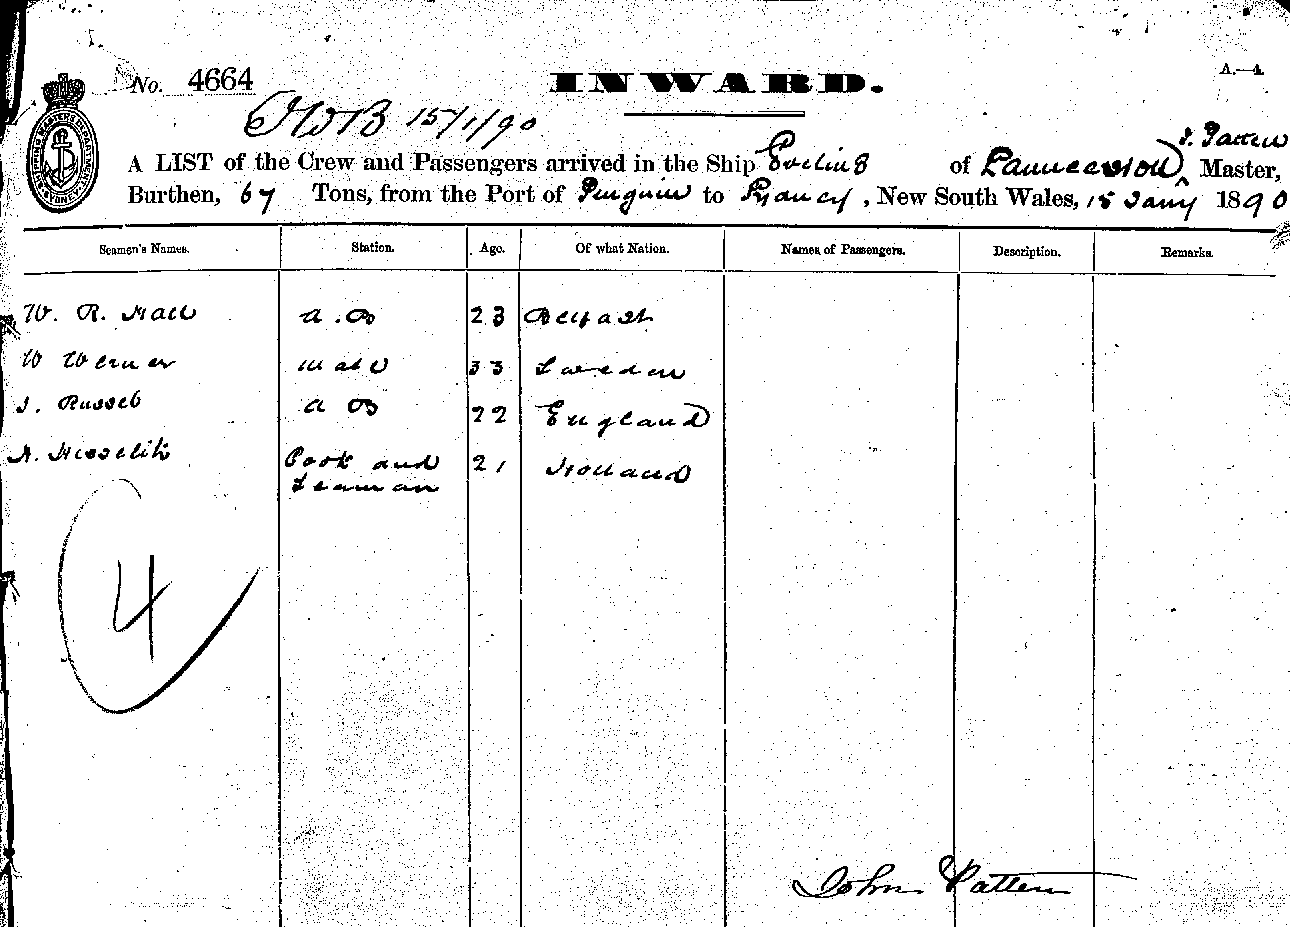 No. 4664
INWARD.
A.—4.
15/1/90
J. Patten
A LIST of the Crew and Passengers arrived in the Ship Eveline of Launceston, Master,
Burthen, 67 Tons, from the Port of Penguin to Sydney, New South Wales, 15 Jany 1890
Seamen's Names. Station. Age. Of what Nation. Names of Passengers. Description. Remarks.
W. R. Hall A.B 23 Belfast
W Werner Mate 33 Sweden
J. Russell A B 22 England
A. Cook and 21 Holland
Seaman
4
John Patten